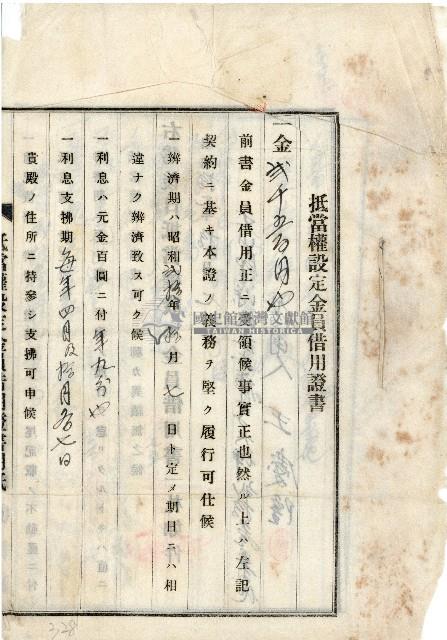 抵當權設定金員借用證書
一金貳千五百円也
前書金員借用正ニ受領候事實正也然ル上ハ左記
契約ニ基キ本證ノ義務ヲ堅ク履行可仕候
一辨濟期ハ昭和貳拾年拾月七日ト定メ期日ニハ相
違ナク辨濟致ス可ク候
一利息ハ元金百圓ニ付年九分也
一利息支拂期每年四月及拾月各七日
貴殿ノ住所ニ持參シ支拂可申候
抵當權設定金員借用證書用紙
國史館臺灣文獻館
TAIWAN HISTORICA
328